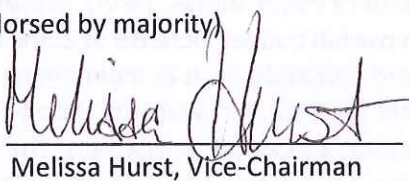 dorsed by majority)
Melissa Hurst
Melissa Hurst, Vice-Chairman